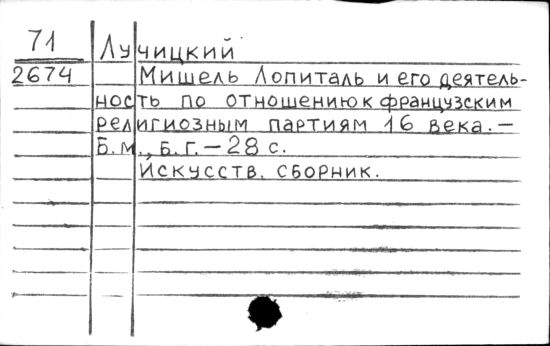 71 Лучицкий
2674 Мишель Лопиталь и его деятель-
ность по отношению к французским
религиозным партиям 16 века. —
Б.м., б.г. — 28 с.
Искусств. сборник.